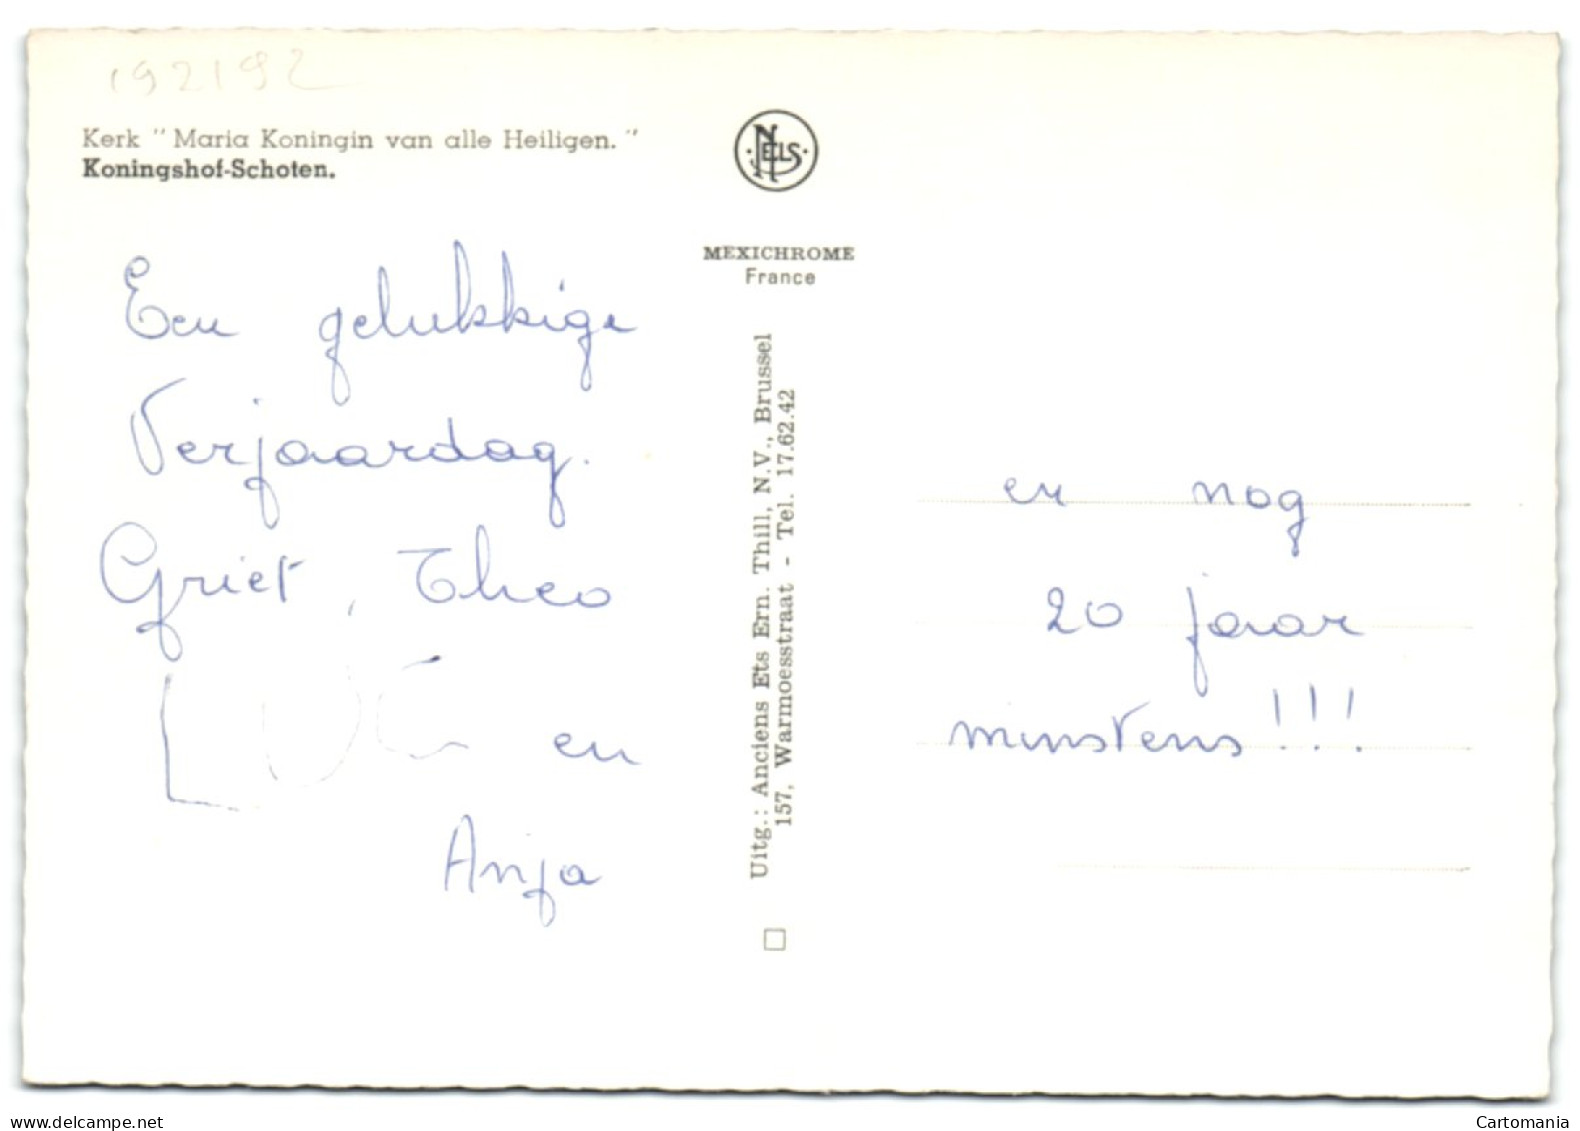 192192
Kerk " Maria Koningin van alle Heiligen. "
Koningshof-Schoten.
NELS
MEXICHROME
France
Een gelukkige
Verjaardag.
Griet, Theo
en
Anja
Uitg.: Anciens Ets Ern. Thill, N.V., Brussel
157, Warmoesstraat - Tel. 17.62.42
en nog
20 jaar
minstens!!!
www.delcampe.net
Cartomania